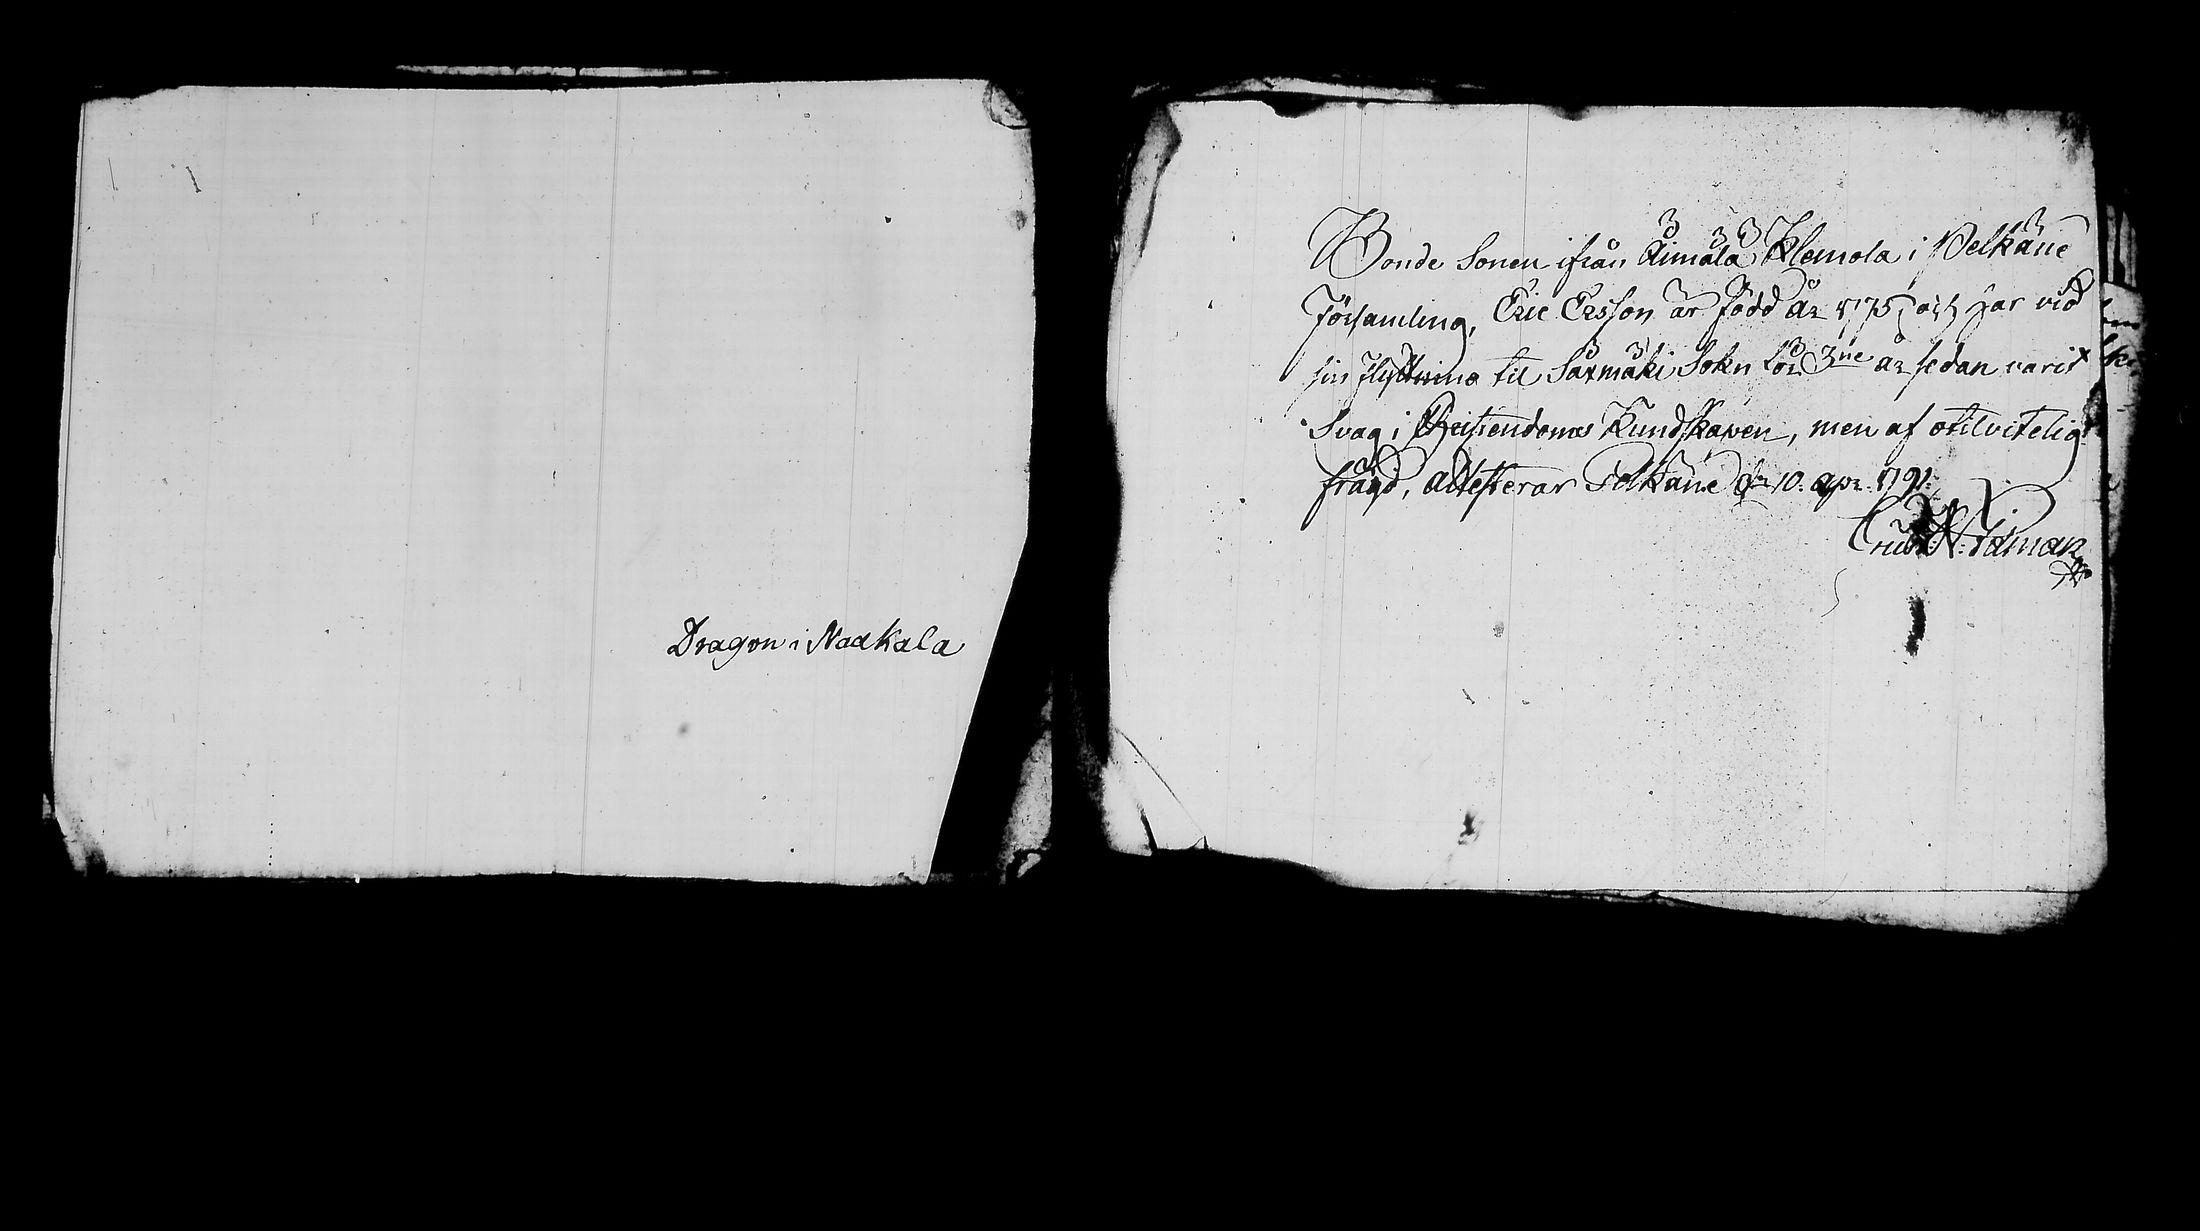 Dragon i Naakala
Bonde Sonen ifrån Äimälä Klemola i Pelkäne
Församling, Eric Ersson är född år 1775, och har vid
sin flyttning til Säxmäki Sokn för 3ne år sedan varit
Svag i Christendoms Kundskapen, men af otilvitelig
frägd, attesterar Pelkäne d. 10. apr. 1791.